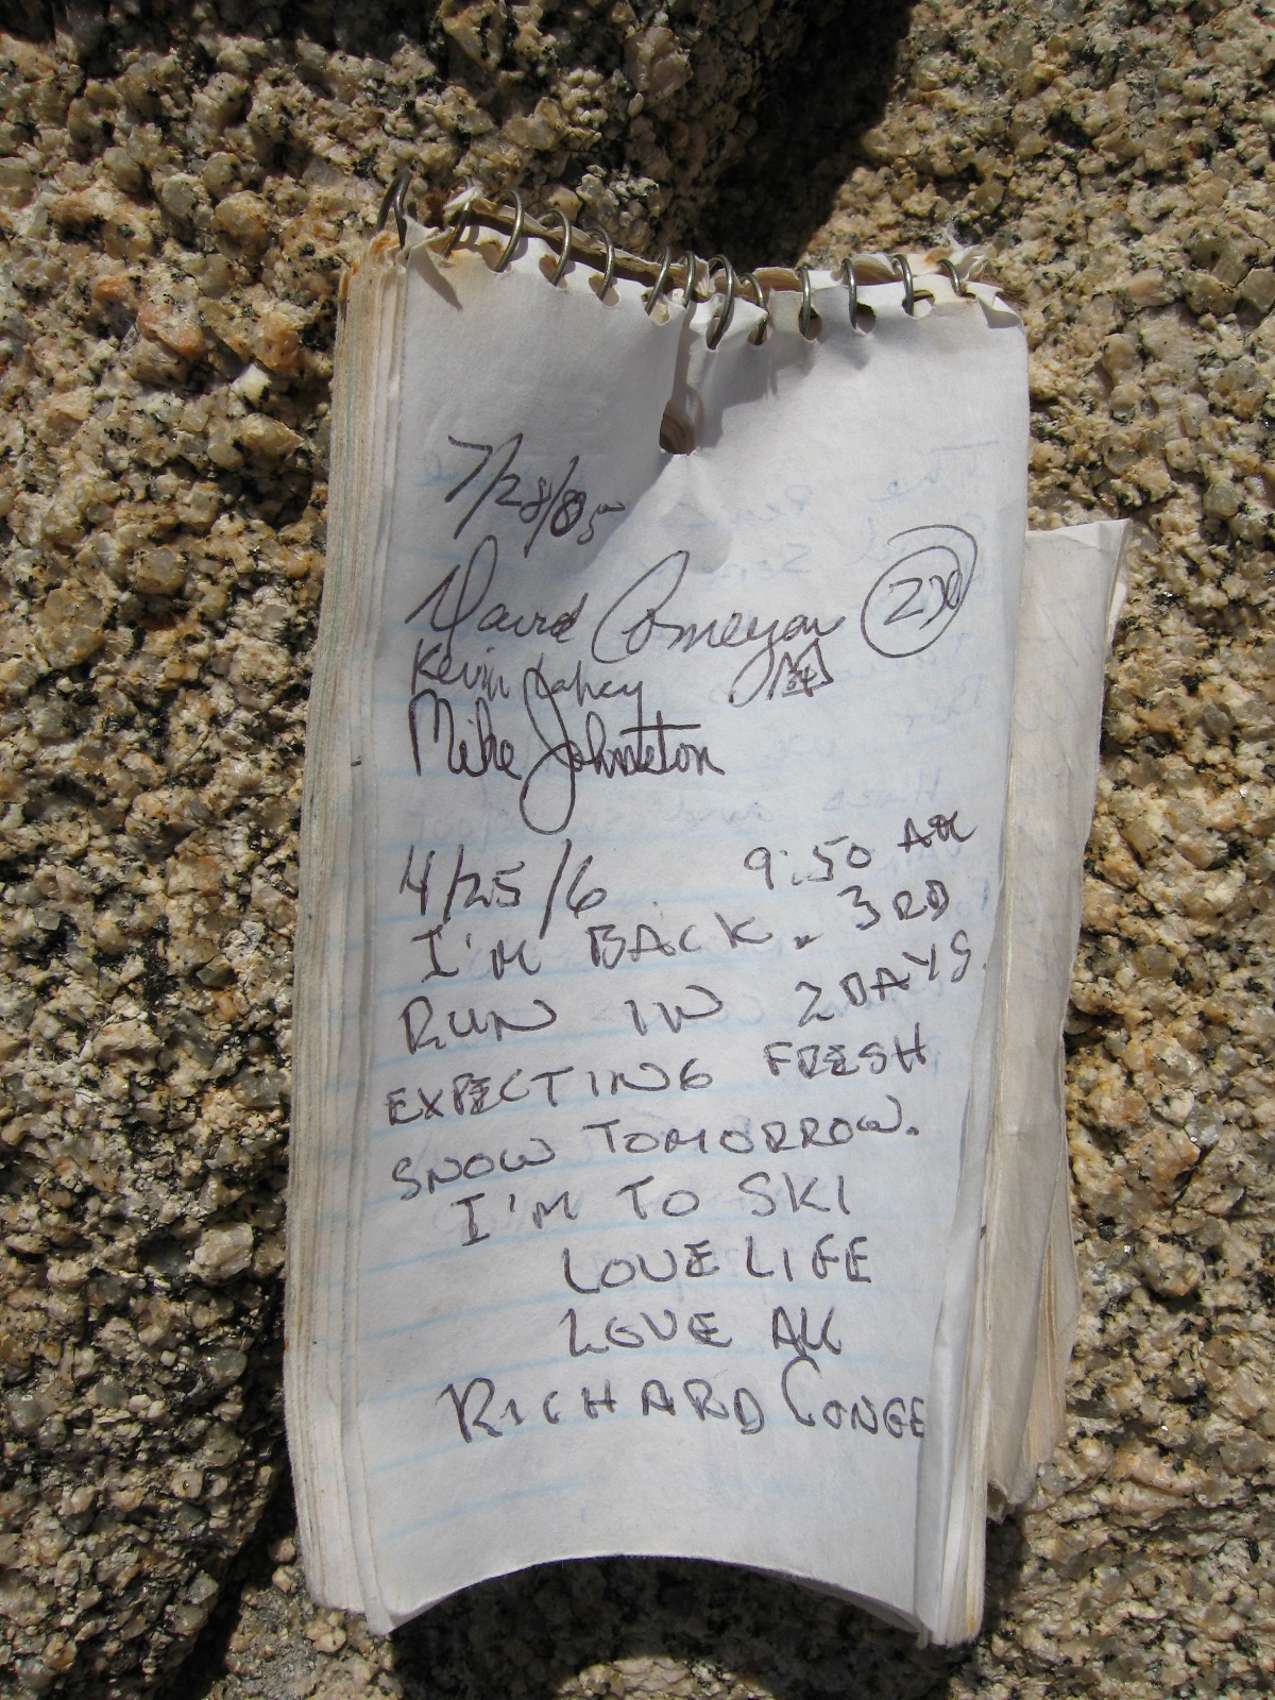 7/28/05
David
Kevin
Mike Johnston
4/25/6 9:50 AM
I'M BACK. 3RD
RUN IN 2 DAYS.
EXPECTING FRESH
SNOW TOMORROW.
I'M TO SKI
LOVE LIFE
LOVE ALL
RICHARD CONGE